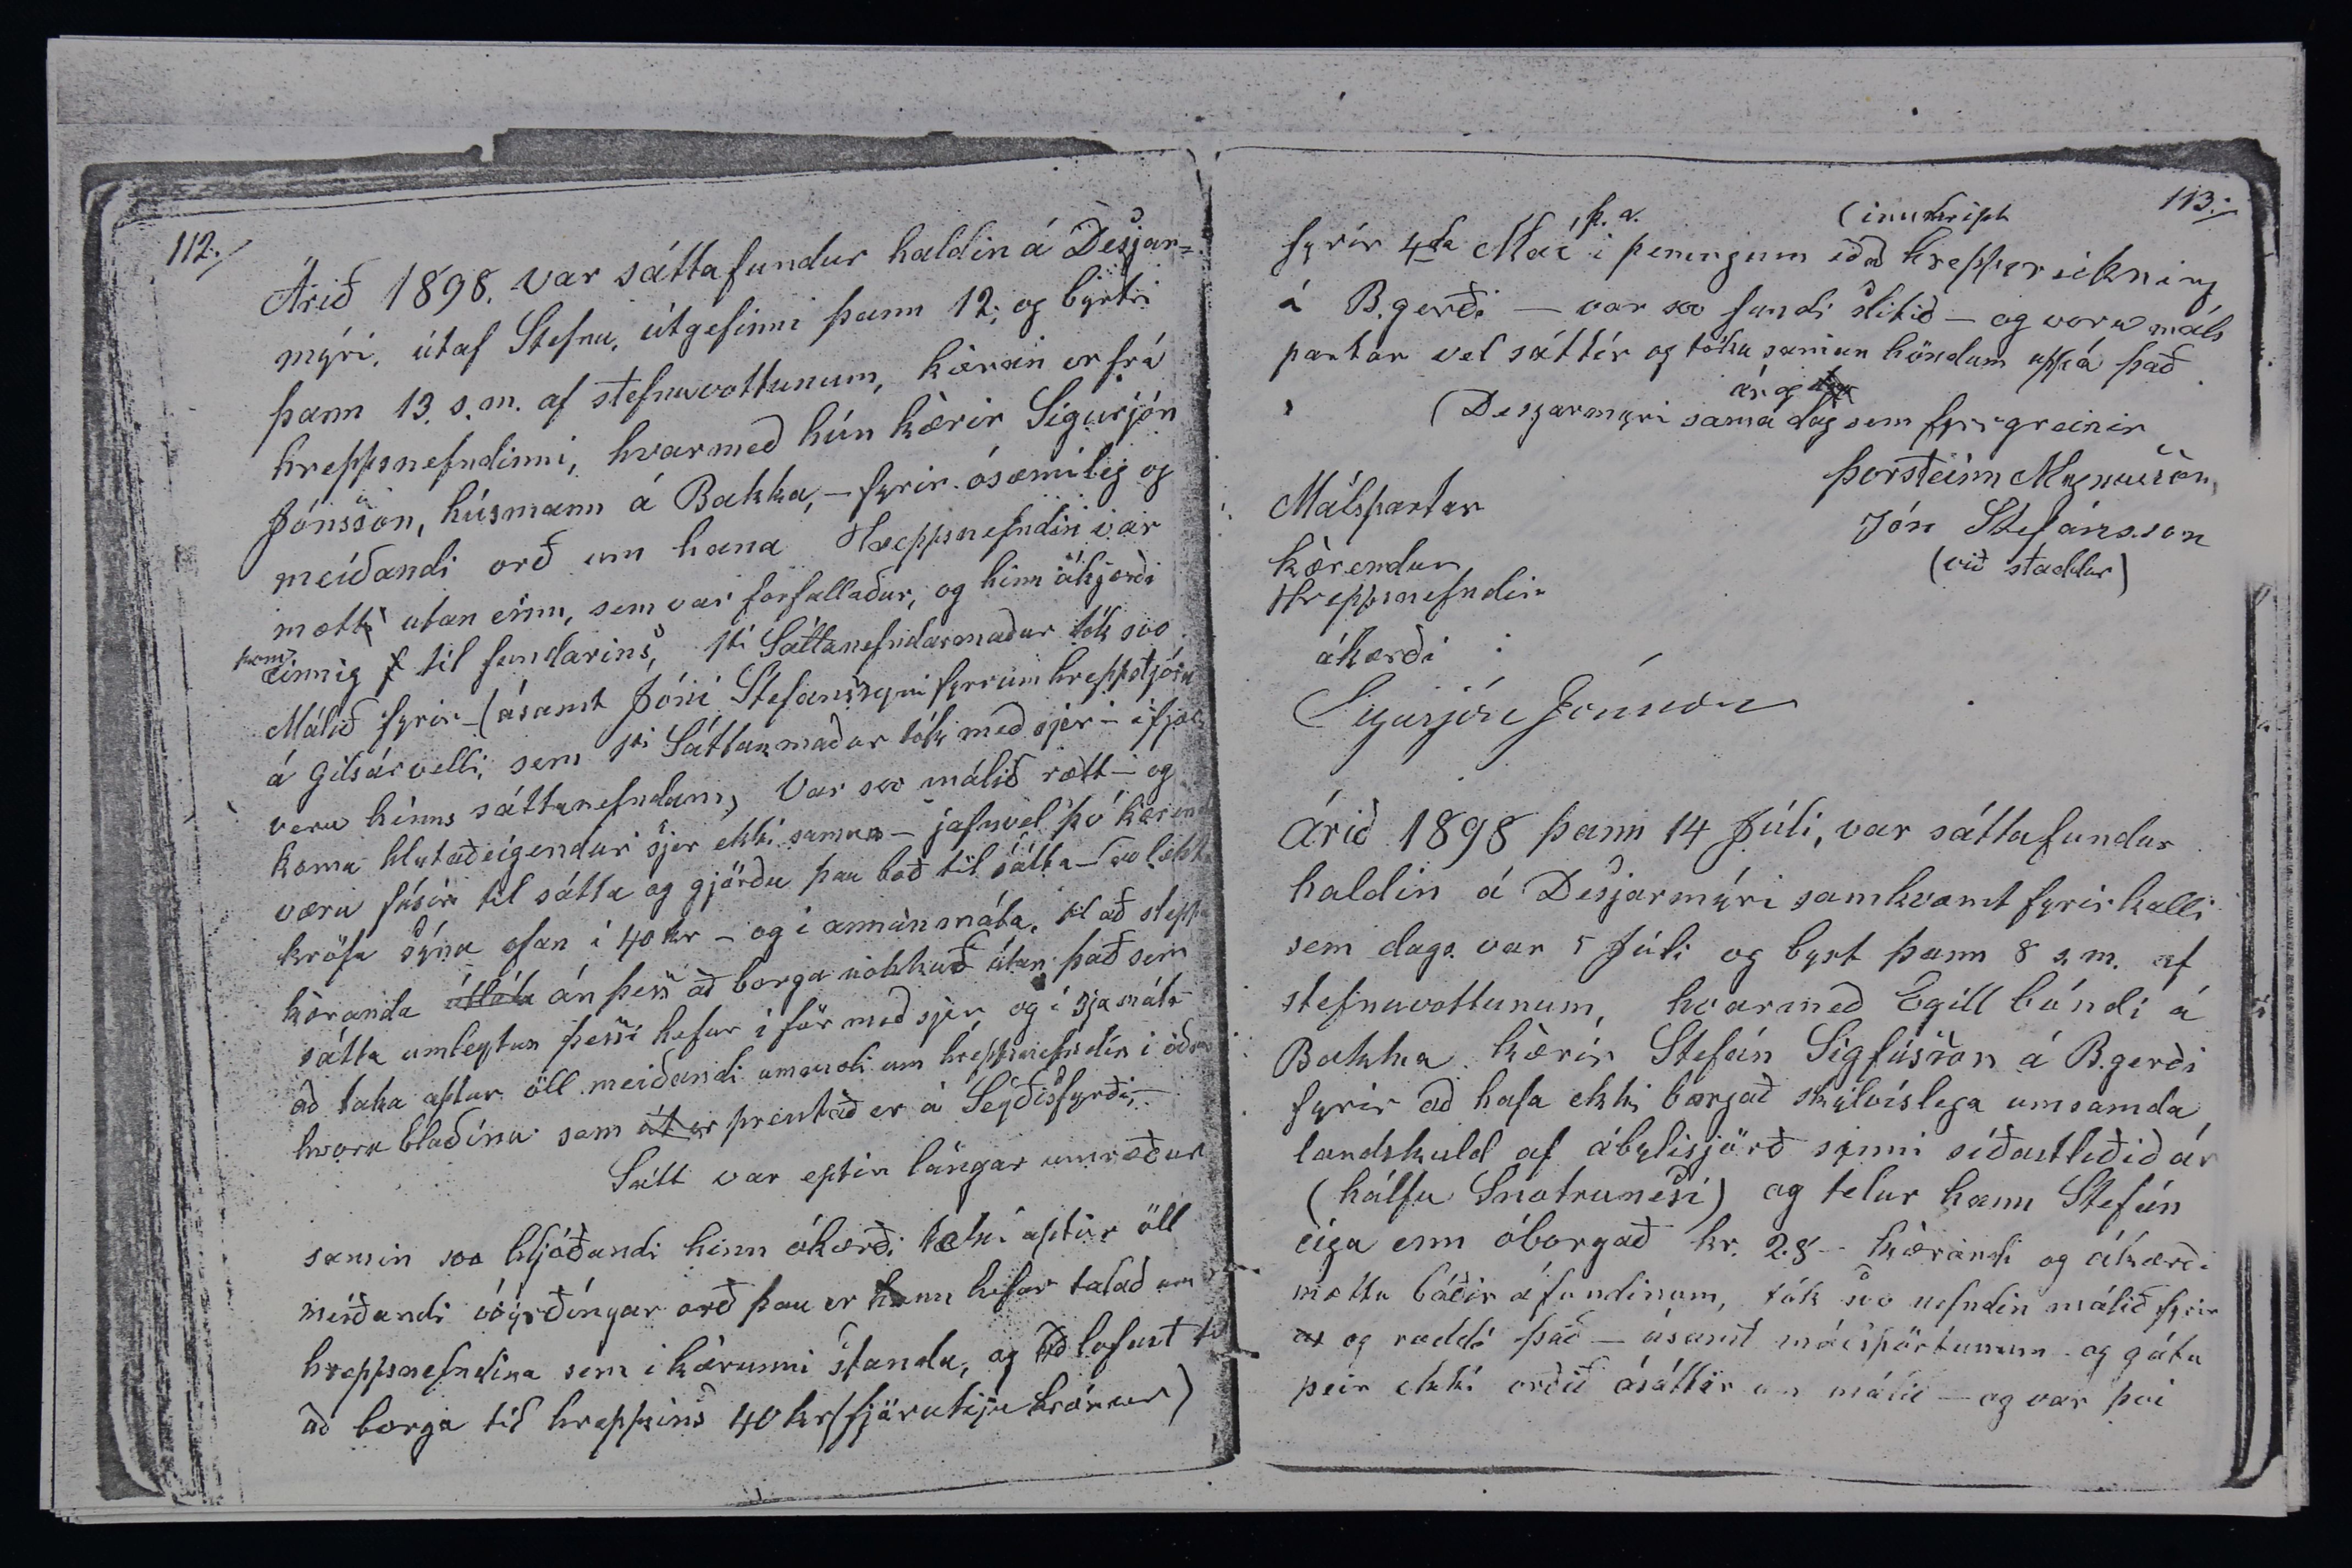 112./
Árið 1898. var sáttafundur haldin á Desjar=
mýri, útaf Stefnu, útgefinni þann 12, og byrtri
þann 13. s.m. af stefnuvottunum, kæran er frá
hreppsnefndinni, hvarmeð hún kærir Sigurjón
Jónsson, húsmann á Bakka, – fyrir ósæmileg og
meiðandi orð um hana Hreppsnefndin var
mætt utan einn, sem var forfallaður, og hinn ákjærði
kom einnig til fundarins, 1ti Sáttanefndarmaður tók svo
Málið fyrir – (ásamt Jóni Stefánssyni fyrrum hreppstjóra
á Gilsárvelli, sem 1ti Sáttanmaður tók með sjer – í fjær
veru hinns sáttanefndarm, Var svo málið rætt – og
koma hlutaðeigendur sjer ekki saman – jafnvel þó kærend
væru fúsir til sátta og gjörðu þau boð til sátta – svo lækka
kröfu sýna ofan í 40 kr – og í annan máta, til að sleppa
kæranda án þess að borga nokkuð útan það sem
sátta umleytun þessi hefur í för með sjer, og í 3ja máta
að taka aptur öll meiðandi ummæli um hreppsnefndin í öðru
hvoru blaðinu sem út er prentað er á Seyðisfyrði, –
Sátt var eptir lángar umræður
samin svo hljóðandi hinn ákærði tæki aptur öll
meiðandi óvyrðíngar orð þau er hann hefur talað um
hreppsnefndina sem í kærunni standa, og að lofast til
að borga til hreppsins 40 kr (fjörutiju krónur)
113./
fyrir 4da Maí, þ.á. í peningum eðað (innskript hreppsreikning
á B.gerði – var svo fundi slitið – og voru máls
partar vel sáttir og tóku saman höndum uppá það
(Desjarmýri sama ár og dag sem fyrrgreinir
Þorsteinn Magnusson,
Málspartar
Jón Stefánsson
(við staddur)
kærendur
Hreppsnefndin
ákærði :
Sigurjón Jónsson
Árið 1898 þann 14 Júli, var sáttafundur
haldin á Desjarmýri samkvæmt fyrirkalli
sem dags. var 5 Júli og byrt þann 8 s.m. af
stefnuvottunum, hvarmeð Egill bóndi á
Bakka kærir Stefán Sigfússon á B.gerði
fyrir að hafa ekki borgað skylvíslega umsamda
landskuld af ábýlisjörð synni síðastliðið ár
(hálfu Snotrunesi) og telur hann Stefán
eiga enn óborgað kr. 28 – kærandi og ákærði
mættu báðir á fundinum, tók svo nefndin málið fyrir
og ræddi það – ásamt málspörtunum og gátu
þeir ekki orðið ásáttir um málið – og var því